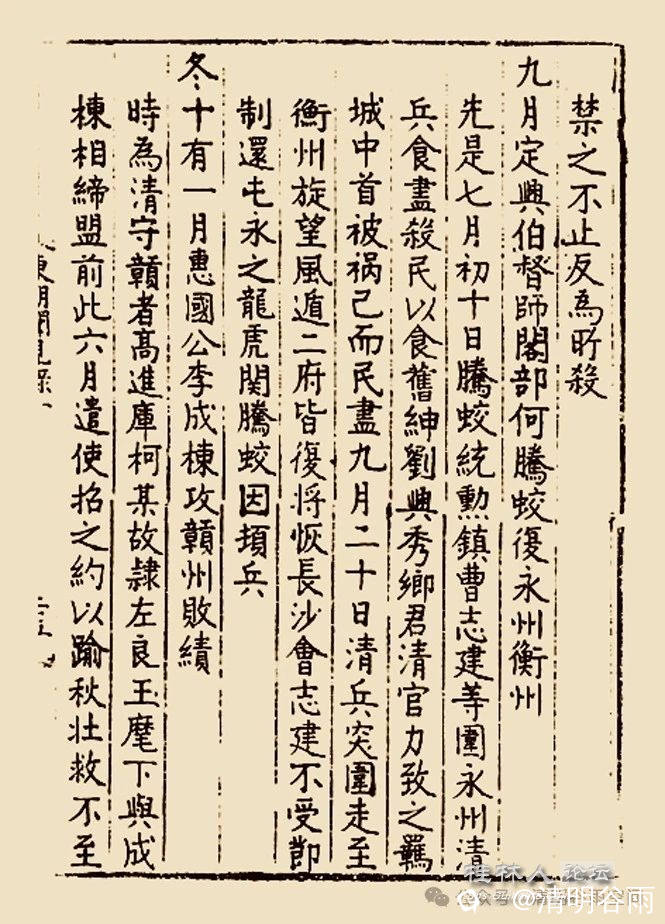 禁之不止反為所殺
九月定興伯督師閣部何騰蛟復永州衡州
先是七月初十日騰蛟統勲鎮曹志建等圍永州清
兵食盡殺民以食舊紳劉興秀鄉君清官力致之羈
城中首被禍已而民盡九月二十日清兵突圍走至
衡州旋望風遁二府皆復將恢長沙會志建不受節
制還屯永之龍虎関騰蛟因頓兵
冬十有一月惠國公李成棟攻贛州敗績
時為清守贛者高進庫柯某故隷左良玉麾下與成
棟相締盟前此六月遣使招之約以踰秋壮救不至
東明聞見錄
桂林人论坛
公众号
@清明谷雨